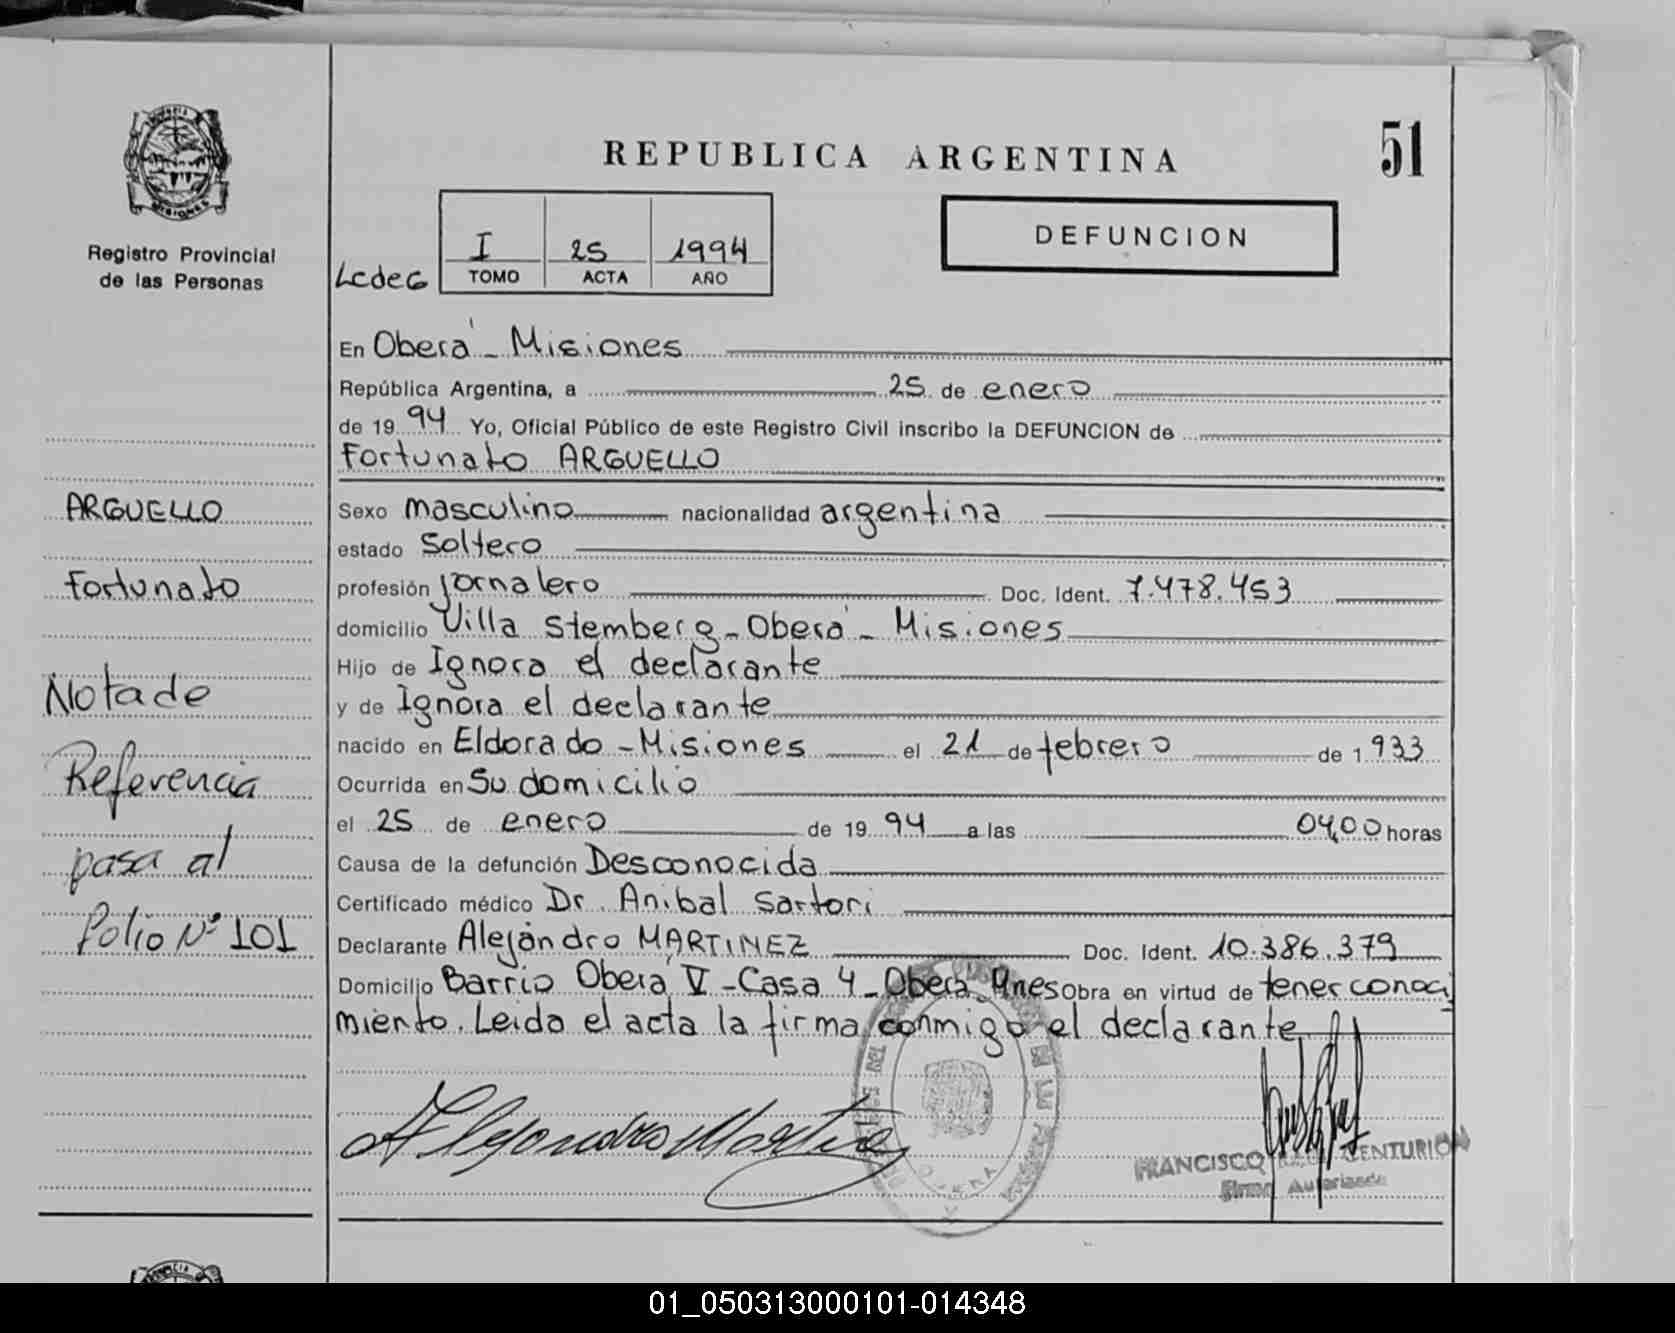 REPUBLICA ARGENTINA
51
MISIONES
Registro Provincial
de las Personas
DEFUNCION
I 25 1994
TOMO ACTA AÑO
En Oberá - Misiones
República Argentina, a 25 de enero
de 1994 Yo, Oficial Público de este Registro Civil inscribo la DEFUNCION de
Fortunato ARGUELLO
Sexo masculino nacionalidad argentina
estado Soltero
profesión jornalero Doc. Ident. 7.478.453
domicilio Villa Stemberg - Oberá - Misiones
Hijo de Ignora el declarante
y de Ignora el declarante
nacido en Eldorado - Misiones el 21 de febrero de 1933
Ocurrida en Su domicilio
el 25 de enero de 1994 a las 04,00 horas
Causa de la defunción Desconocida
Certificado médico Dr. Anibal Sartori
Declarante Alejandro MARTINEZ Doc. Ident. 10.386.379
Domicilio Barrio Oberá V - Casa 4 - Oberá Mnes Obra en virtud de tener conoci
miento. Leida el acta la firma conmigo el declarante
ARGUELLO
Fortunato
Nota de
Referencia
pasa al
folio Nº 101
Alejandro Martinez
OBERA
FRANCISCO CENTURION
Firma Autorizada
01_050313000101-014348